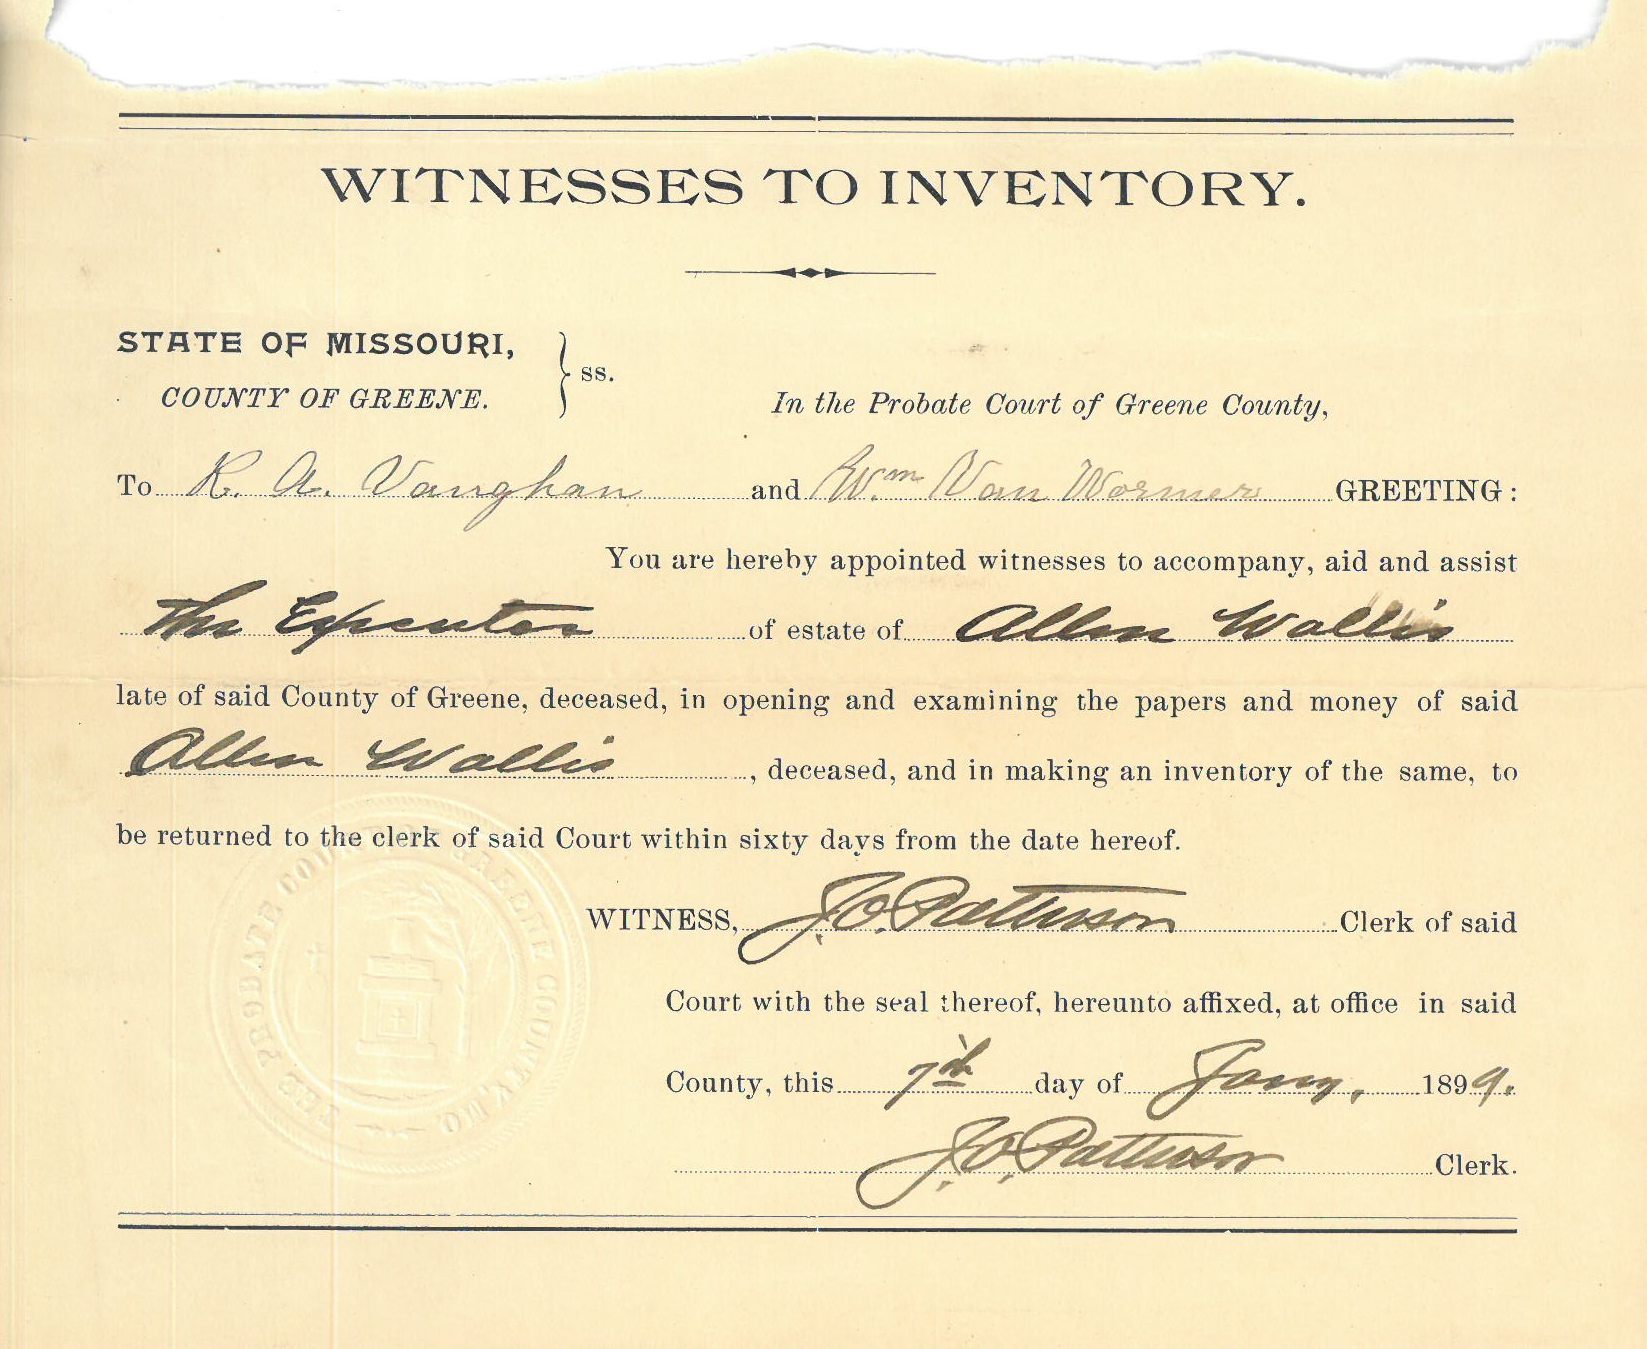 WITNESSES TO INVENTORY.
STATE OF MISSOURI,
COUNTY OF GREENE.
ss.
In the Probate Court of Greene County,
To R. A. Vaughan and Wm Van Wormer GREETING:
You are hereby appointed witnesses to accompany, aid and assist
the Executor of estate of Allen Wallis
late of said County of Greene, deceased, in opening and examining the papers and money of said
Allen Wallis, deceased, and in making an inventory of the same, to
be returned to the clerk of said Court within sixty days from the date hereof.
WITNESS, J. O. Patterson Clerk of said
Court with the seal thereof, hereunto affixed, at office in said
County, this 7th day of Jany, 1899.
J. O. Patterson Clerk.
THE PROBATE COURT OF GREENE COUNTY, MO